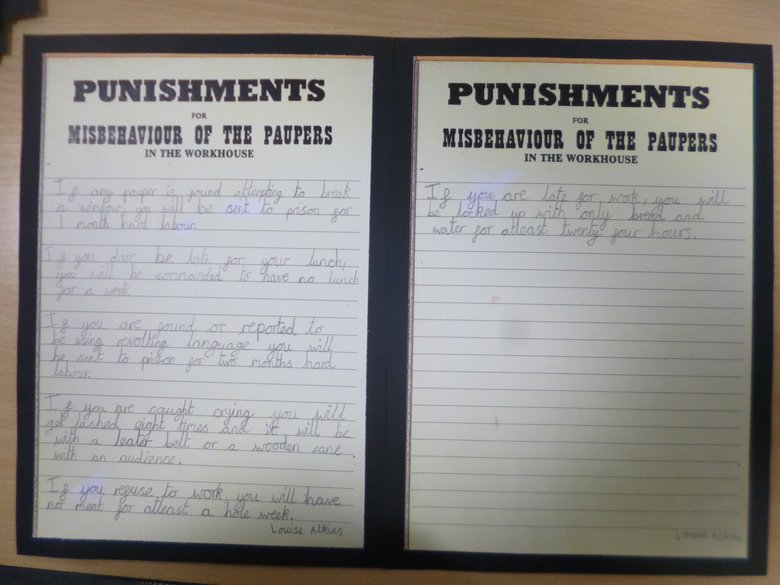 PUNISHMENTS
FOR
MISBEHAVIOUR OF THE PAUPERS
IN THE WORKHOUSE
If any pauper is found attempting to break
a window, you will be sent to prison for
1 month hard labour.
If you dare be late for your lunch,
you will be commanded to have no lunch
for a week.
If you are found or reported to
be using revolting language you will
be sent to prison for two months hard
labour.
If you are caught crying you will
get lashed eight times and it will be
with a leater belt or a wooden cane
with an audience.
If you refuse to work, you will have
no meat for atleast a hole week.
Louise Atkins
PUNISHMENTS
FOR
MISBEHAVIOUR OF THE PAUPERS
IN THE WORKHOUSE
If you are late for work, you will
be locked up with only bread and
water for atleast twenty four hours.